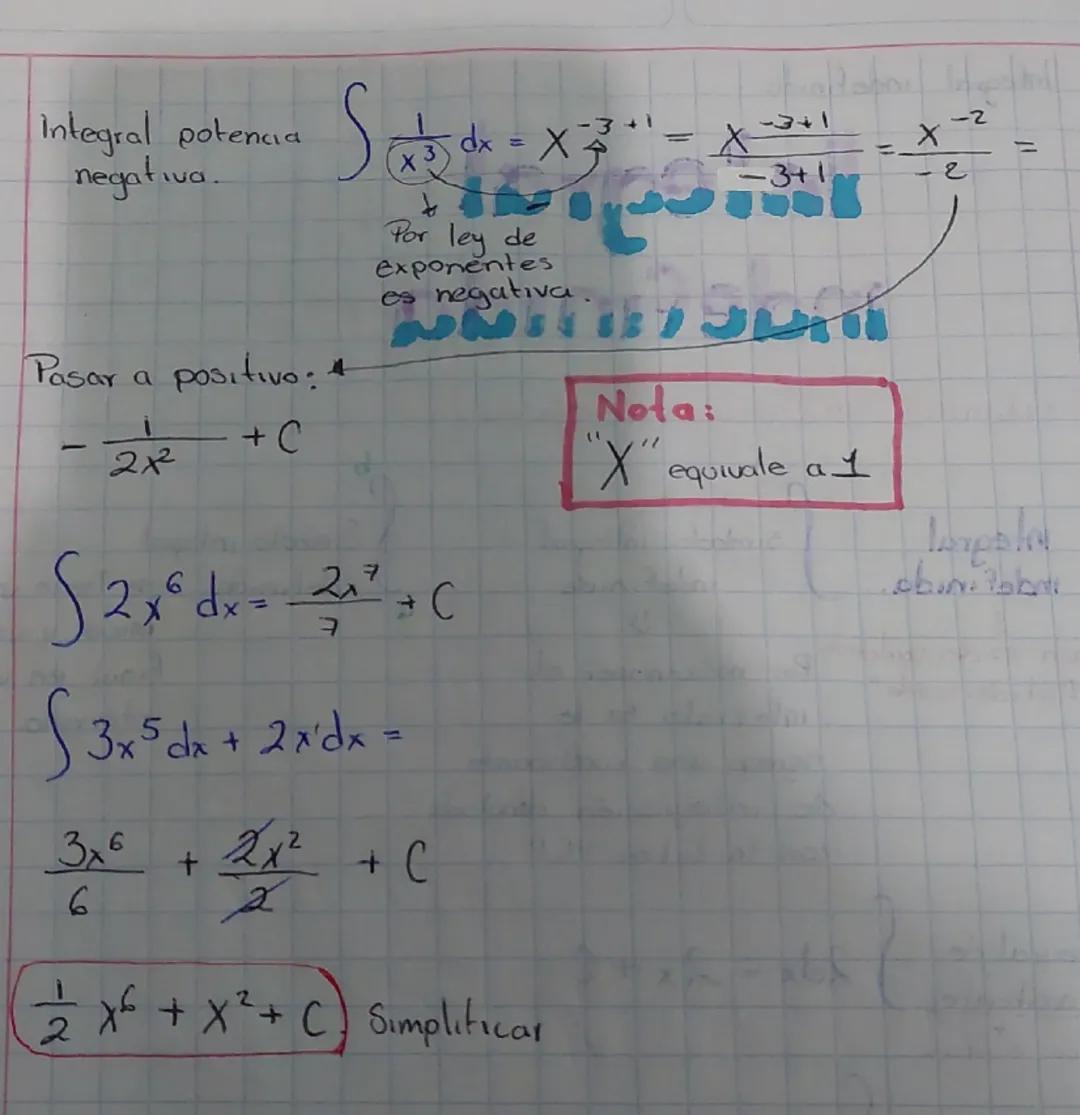 Integral potencia negativa. ∫ 1/x³ dx = x⁻³⁺¹ = x⁻³⁺¹/-3+1 = x⁻²/-2 =
Por ley de
exponentes
es negativa.
Pasar a positivo:
- 1/2x² + C
Nota:
"X" equivale a 1
∫ 2x⁶ dx = 2x⁷/7 + C
∫ 3x⁵ dx + 2x¹dx =
3x⁶/6 + 2x²/2 + C
1/2 x⁶ + x² + C Simplificar